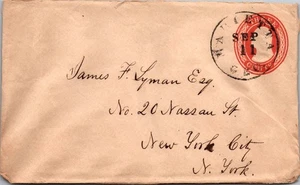 MARIETTA
SEP
11
GA
James F. Lyman Esq.
No. 20 Nassau St.
New York City
N. York.